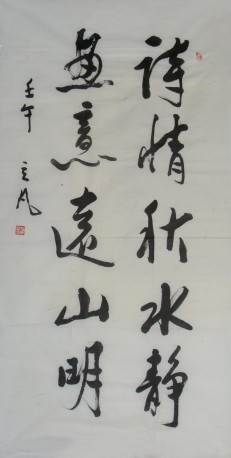 詩情秋水静
畫意遠山明
壬午